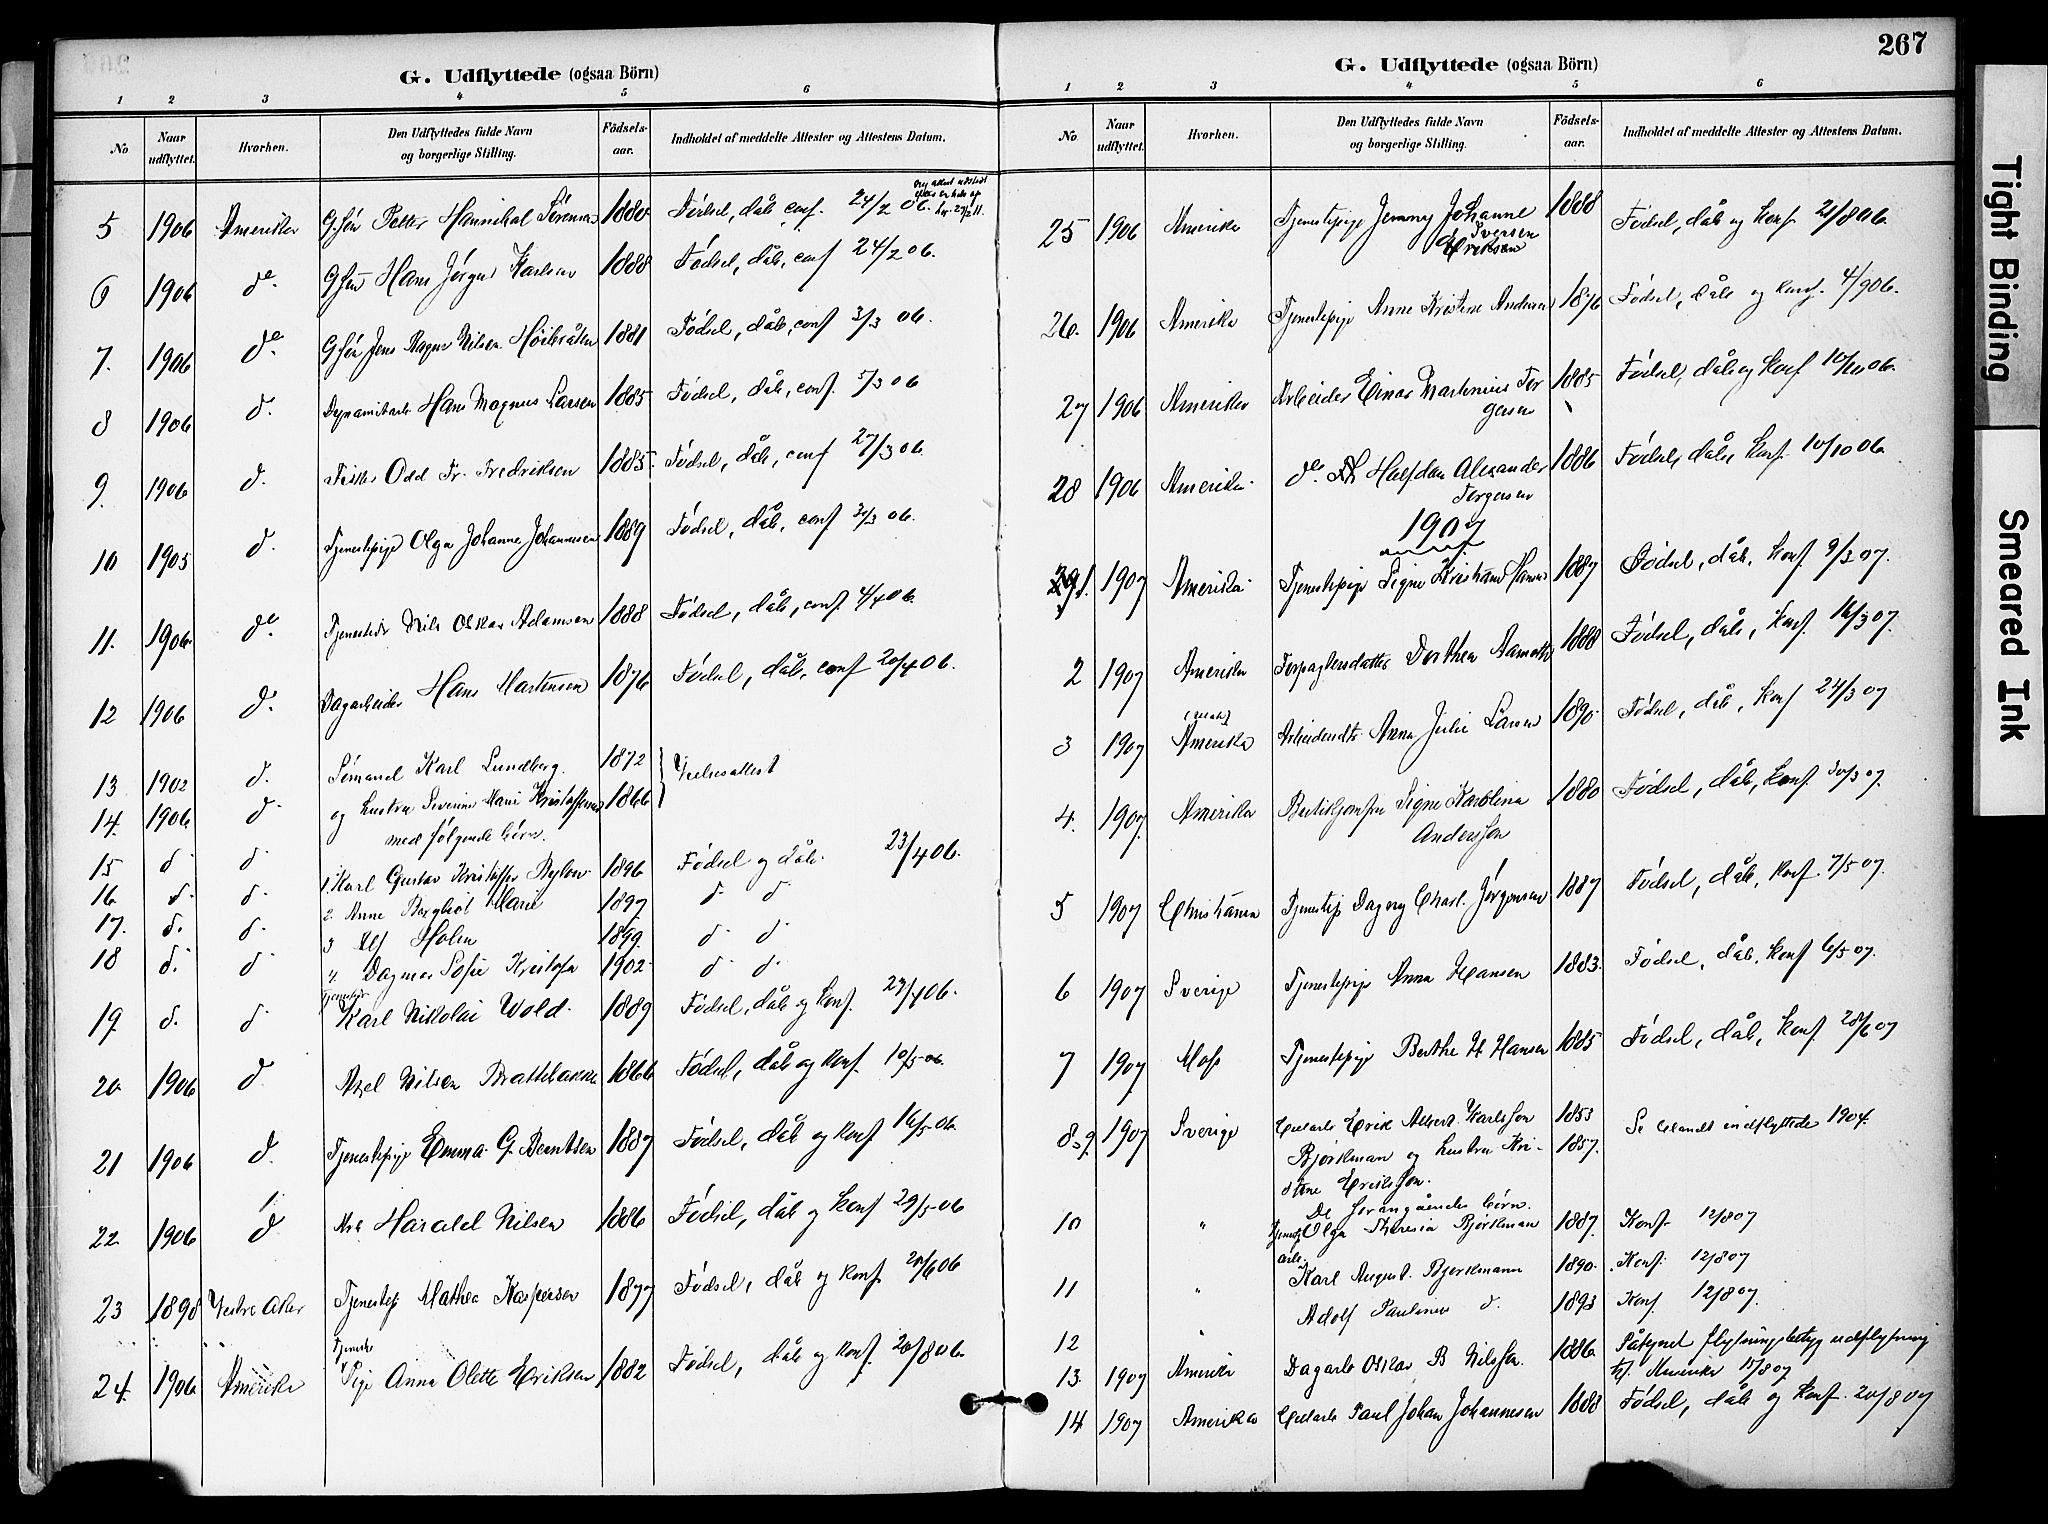 G. Udflyttede (ogsaa Börn)
1 2 3 4 5 6
No Naar udflyttet. Hvorhen. Den Udflyttedes fulde Navn og borgerlige Stilling. Födsels-aar. Indholdet af meddelte Attester og Attestens Datum.
5 1906 Amerika G.søn Petter Hannibal Sørensen 1880 Fødsel, dåb, conf. 24/2 06.
6 1906 do. G søn Hans Jørgen Karlsen 1888 Fødsel, dåb, conf 24/2 06.
7. 1906 do. G søn Jens Ragnv Nilsen Høibråten 1881 Fødsel, dåb, conf 3/3 06.
8 1906 d. Dynamitarb Hans Magnus Larsen 1885 Fødsel, dåb, conf. 5/3 06
9. 1906 d. Fisker Odd Fr. Fredriksen 1885. Fødsel, dåb, conf 27/3 06.
10 1905 d. Tjenestepige Olga Johanne Johannesen 1889 Fødsel, dåb, conf 30/3 06.
11. 1906 do. Tjenestedr Nils Oskar Adamsen 1888 Fødsel, dåb, conf. 4/4 06.
12 1906 d. Dagarbeider Hans Martinsen 1876 Fødsel, dåb, conf 20/4 06.
13 1902 d. Sømand Karl Lundberg. 1872 Vielsesattest
14. 1906 d. og hustru Severine Marie Kristoffersen 1866
med følgende børn.
15 d d 1. Karl Gustav Kristoffer Bylow 1896 Fødsel og dåb. 23/4 06.
16 d. d. 2. Anne Borghild Marie 1897 d. d.
17. d. d. 3 Alf Holm 1899. d. d.
18 d. d 4. Dagmar Sofie Kristofa 1902 d. d.
19 d. d Tjenestedr Karl Nikolai Wold. 1889 Fødsel, dåb og konf. 27/4 06.
20 1906 d. Axel Nilsen Brattebakke 1866 Fødsel, dåb og konf. 10/5 06.
21 1906 d. Tjenestepige Emma G. Berntsen 1887 Fødsel, dåb og konf 16/5 06.
22 1906 d Arb Harald Nilsen 1886 Fødsel, dåb og konf 29/5 06
23 1898 Vestre Aker Tjenestep Mathea Kaspersen 1877 Fødsel, dåb og konf. 20/6 06
24. 1906 Amerika Tjeneste Pige Anna Olette Eriksen 1882 Fødsel, dåb og konf. 20/8 06.
267
G. Udflyttede (ogsaa Börn)
1 2 3 4 5 6
No Naar udflyttet. Hvorhen. Den Udflyttedes fulde Navn og borgerlige Stilling. Födsels-aar. Indholdet af meddelte Attester og Attestens Datum.
25 1906 Amerika Tjenestepige Jenny Johanne 1888 Fødsel, dåb og konf 21/8 06.
Iversen
Eriksen
26. 1906 Amerika Tjenestepige Anne Kristine Andersen 1876 Fødsel, dåb og konf. 4/9 06.
27 1906 Amerika Arbeider Einar Martinius Tor 1885 Fødsel, dåb og konf 10/10 06.
gersen
28 1906 Amerika do. Halfdan Alexander 1886 Fødsel, dåb, konf. 10/10 06.
Torgersen
1907
1. 1907 Amerika Tjenestepige Signe Kristiane Hansen 1887 Fødsel, dåb, konf 9/3 07.
2 1907 Amerika Forpagtersdatter Dorthea Aamodt 1888 Fødsel, dåb, konf. 16/3 07.
3 1907 Amerika Arbeidersdtr Anna Julie Larsen 1890 Fødsel, dåb, konf 24/3 07
4. 1907 Amerika Butikjomfru Signe Karolina 1880 Fødsel, dåb, konf. 30/3 07.
Andersson
5 1907 Christiania Tjenestep Dagny Charl. Jørgensen 1887 Fødsel, dåb, konf. 7/5 07.
6 1907 Sverige Tjenestepige Anna Hansen 1883. Fødsel, dåb, konf 6/5 07.
7 1907 Moss Tjenestepige Berthe H Hansen 1885 Fødsel, dåb, konf. 28/6 07
8-9. 1907 Sverige Erik Albert Karlsson 1853 Se blandt indflyttede 1904.
Bjørkman og hustru Kri- 1857.
stine Eriksson.
De forangående børn.
10 " Tjenstp Olga Theresia Bjørkman 1887. Konf. 12/8 07
11 " arb. Karl August. Bjørkmann 1890. Konf. 12/8 07
12 " Adolf Paulinus d. 1893 Konf. 12/8 07.
13. 1907 Amerika Dagarb Oskar B Nilsson. 1886. Påtegnet flytningsbetyg udflytning
til Amerika 15/8 07
14 1907 Amerika Paul Johan Johannesen 1888 Fødsel, dåb og konf. 20/8 07
Tight Binding
Smeared Ink